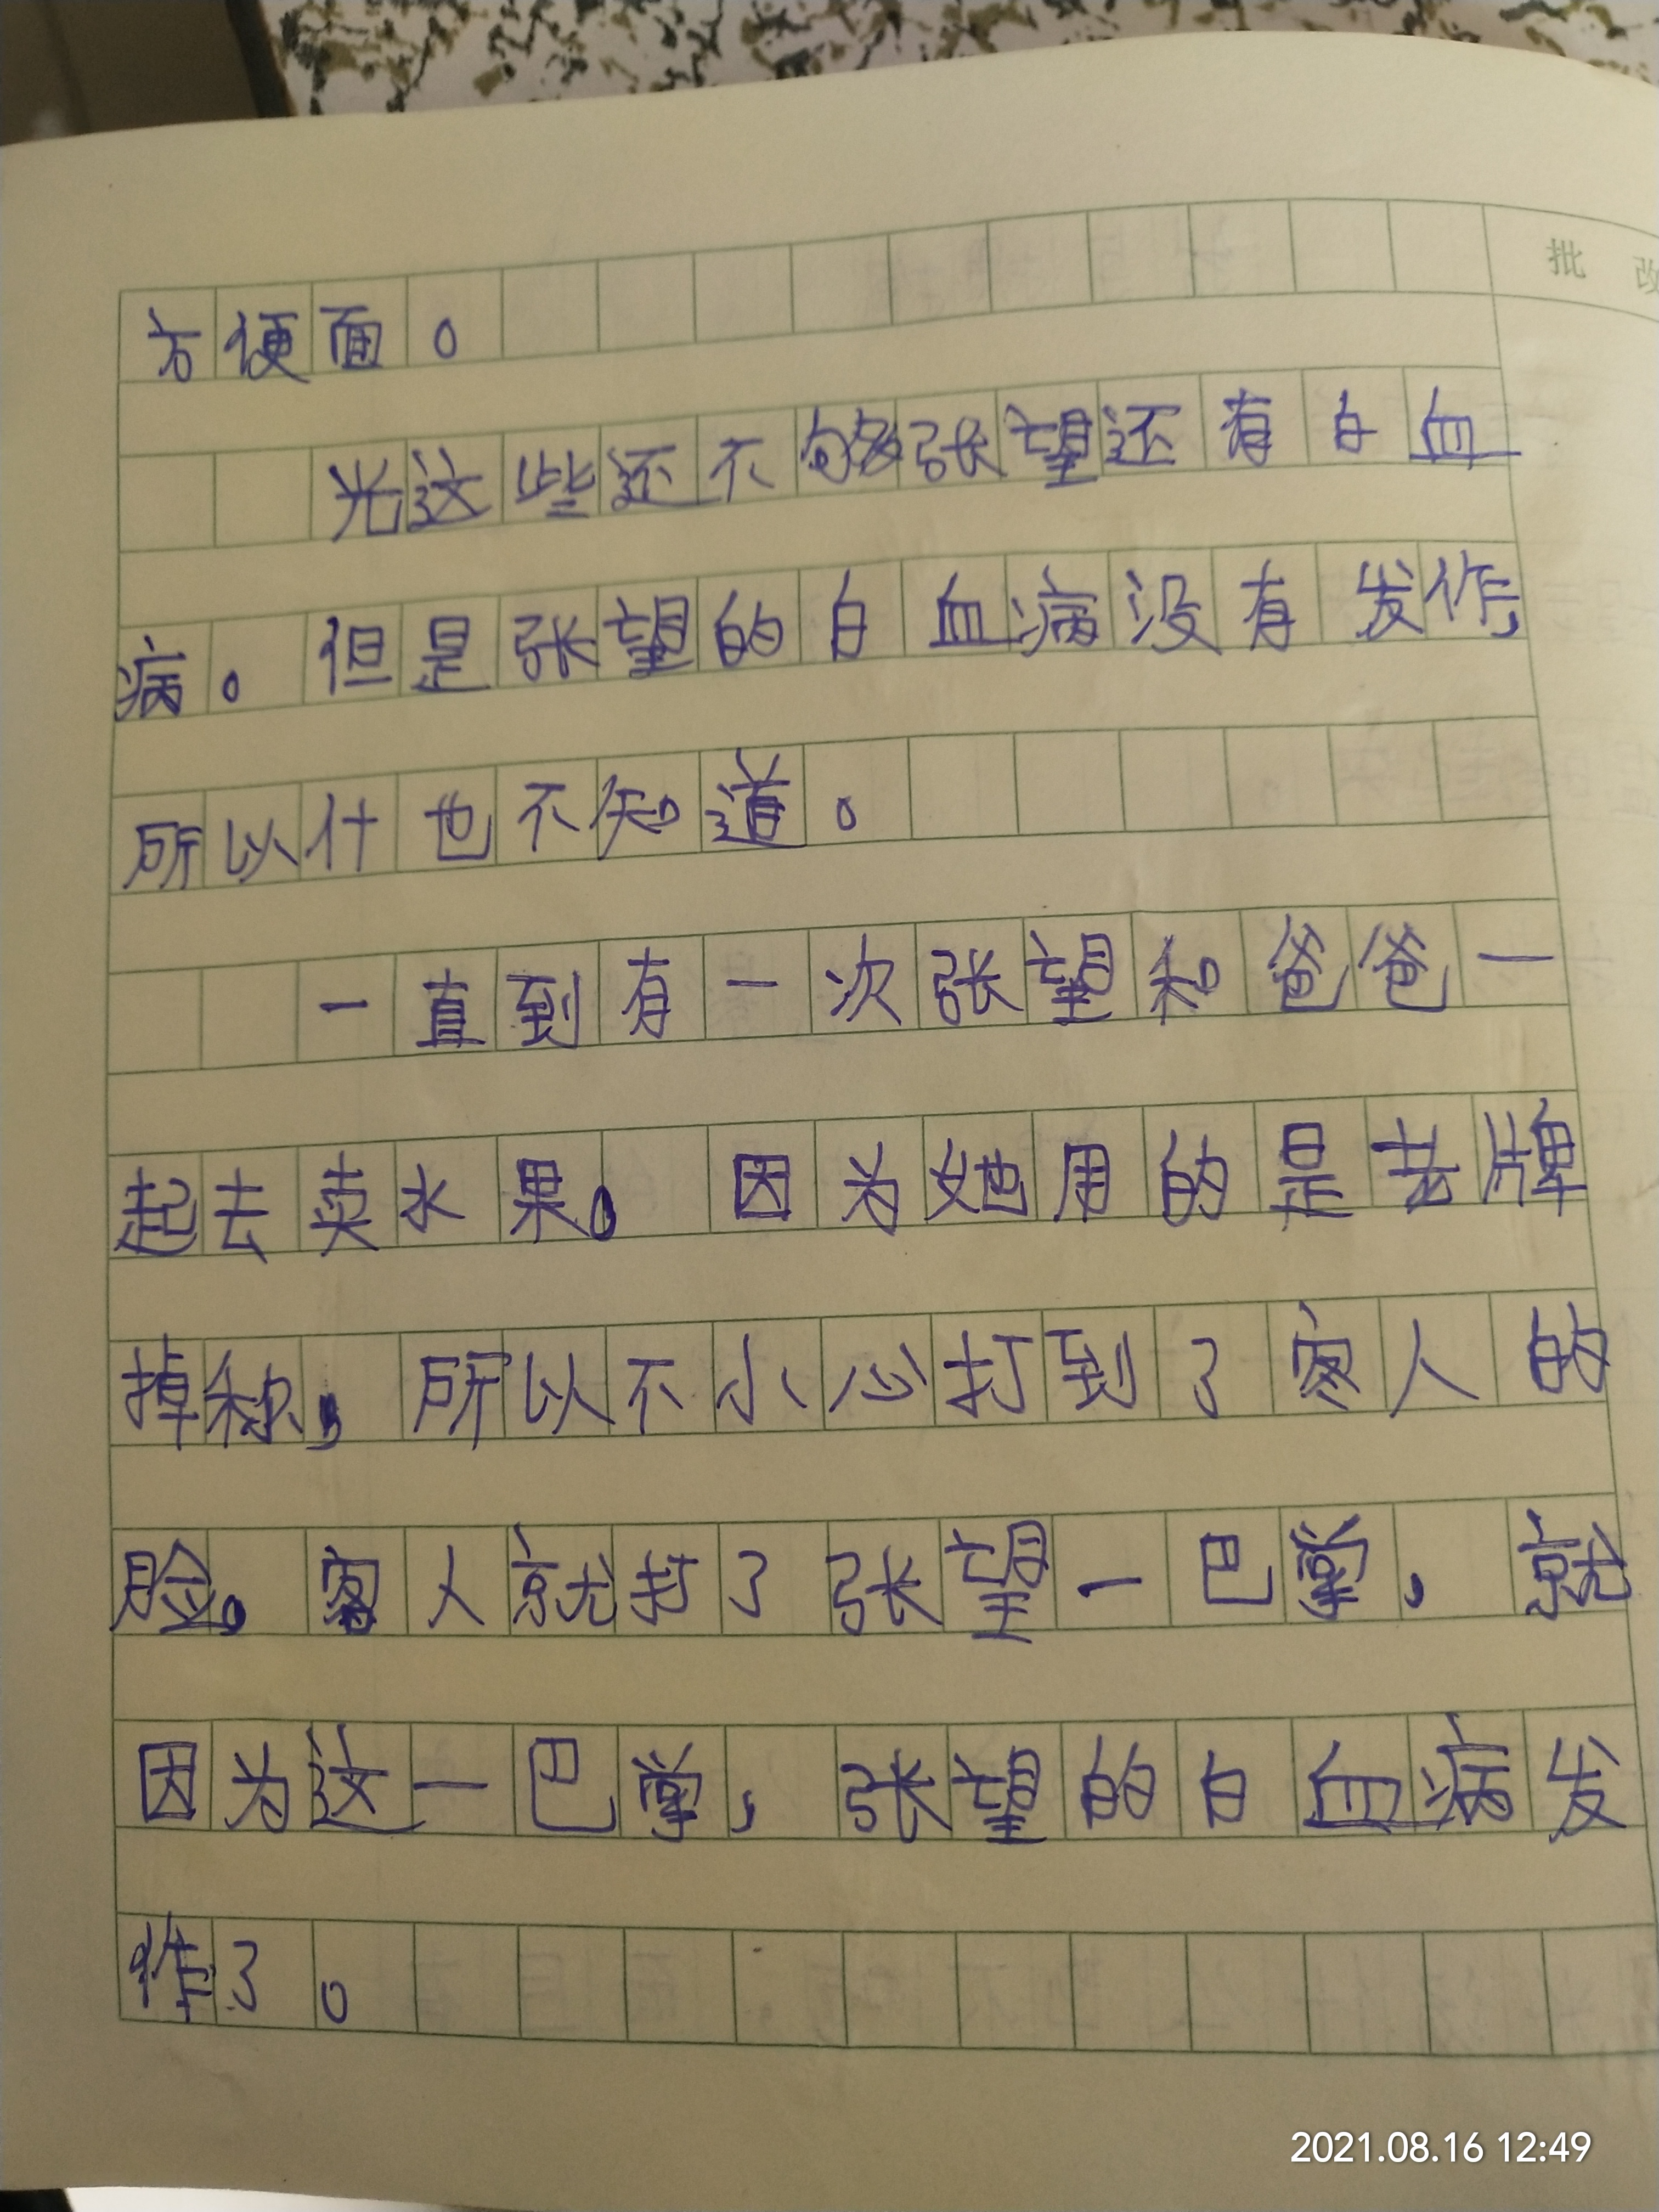 批 改
方便面。
光这些还不够张望还有白血
病。但是张望的白血病没有发作,
所以什也不知道。
一直到有一次张望和爸爸一
起去卖水果。因为她用的是老牌
掉称，所以不小心打到了客人的
脸。客人就打了张望一巴掌，就
因为这一巴掌，张望的白血病发
作了。
2021.08.16 12:49